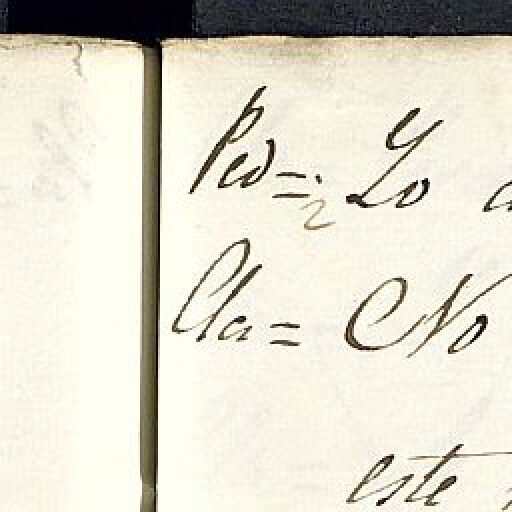 Ped= Yo
Cla= No
este